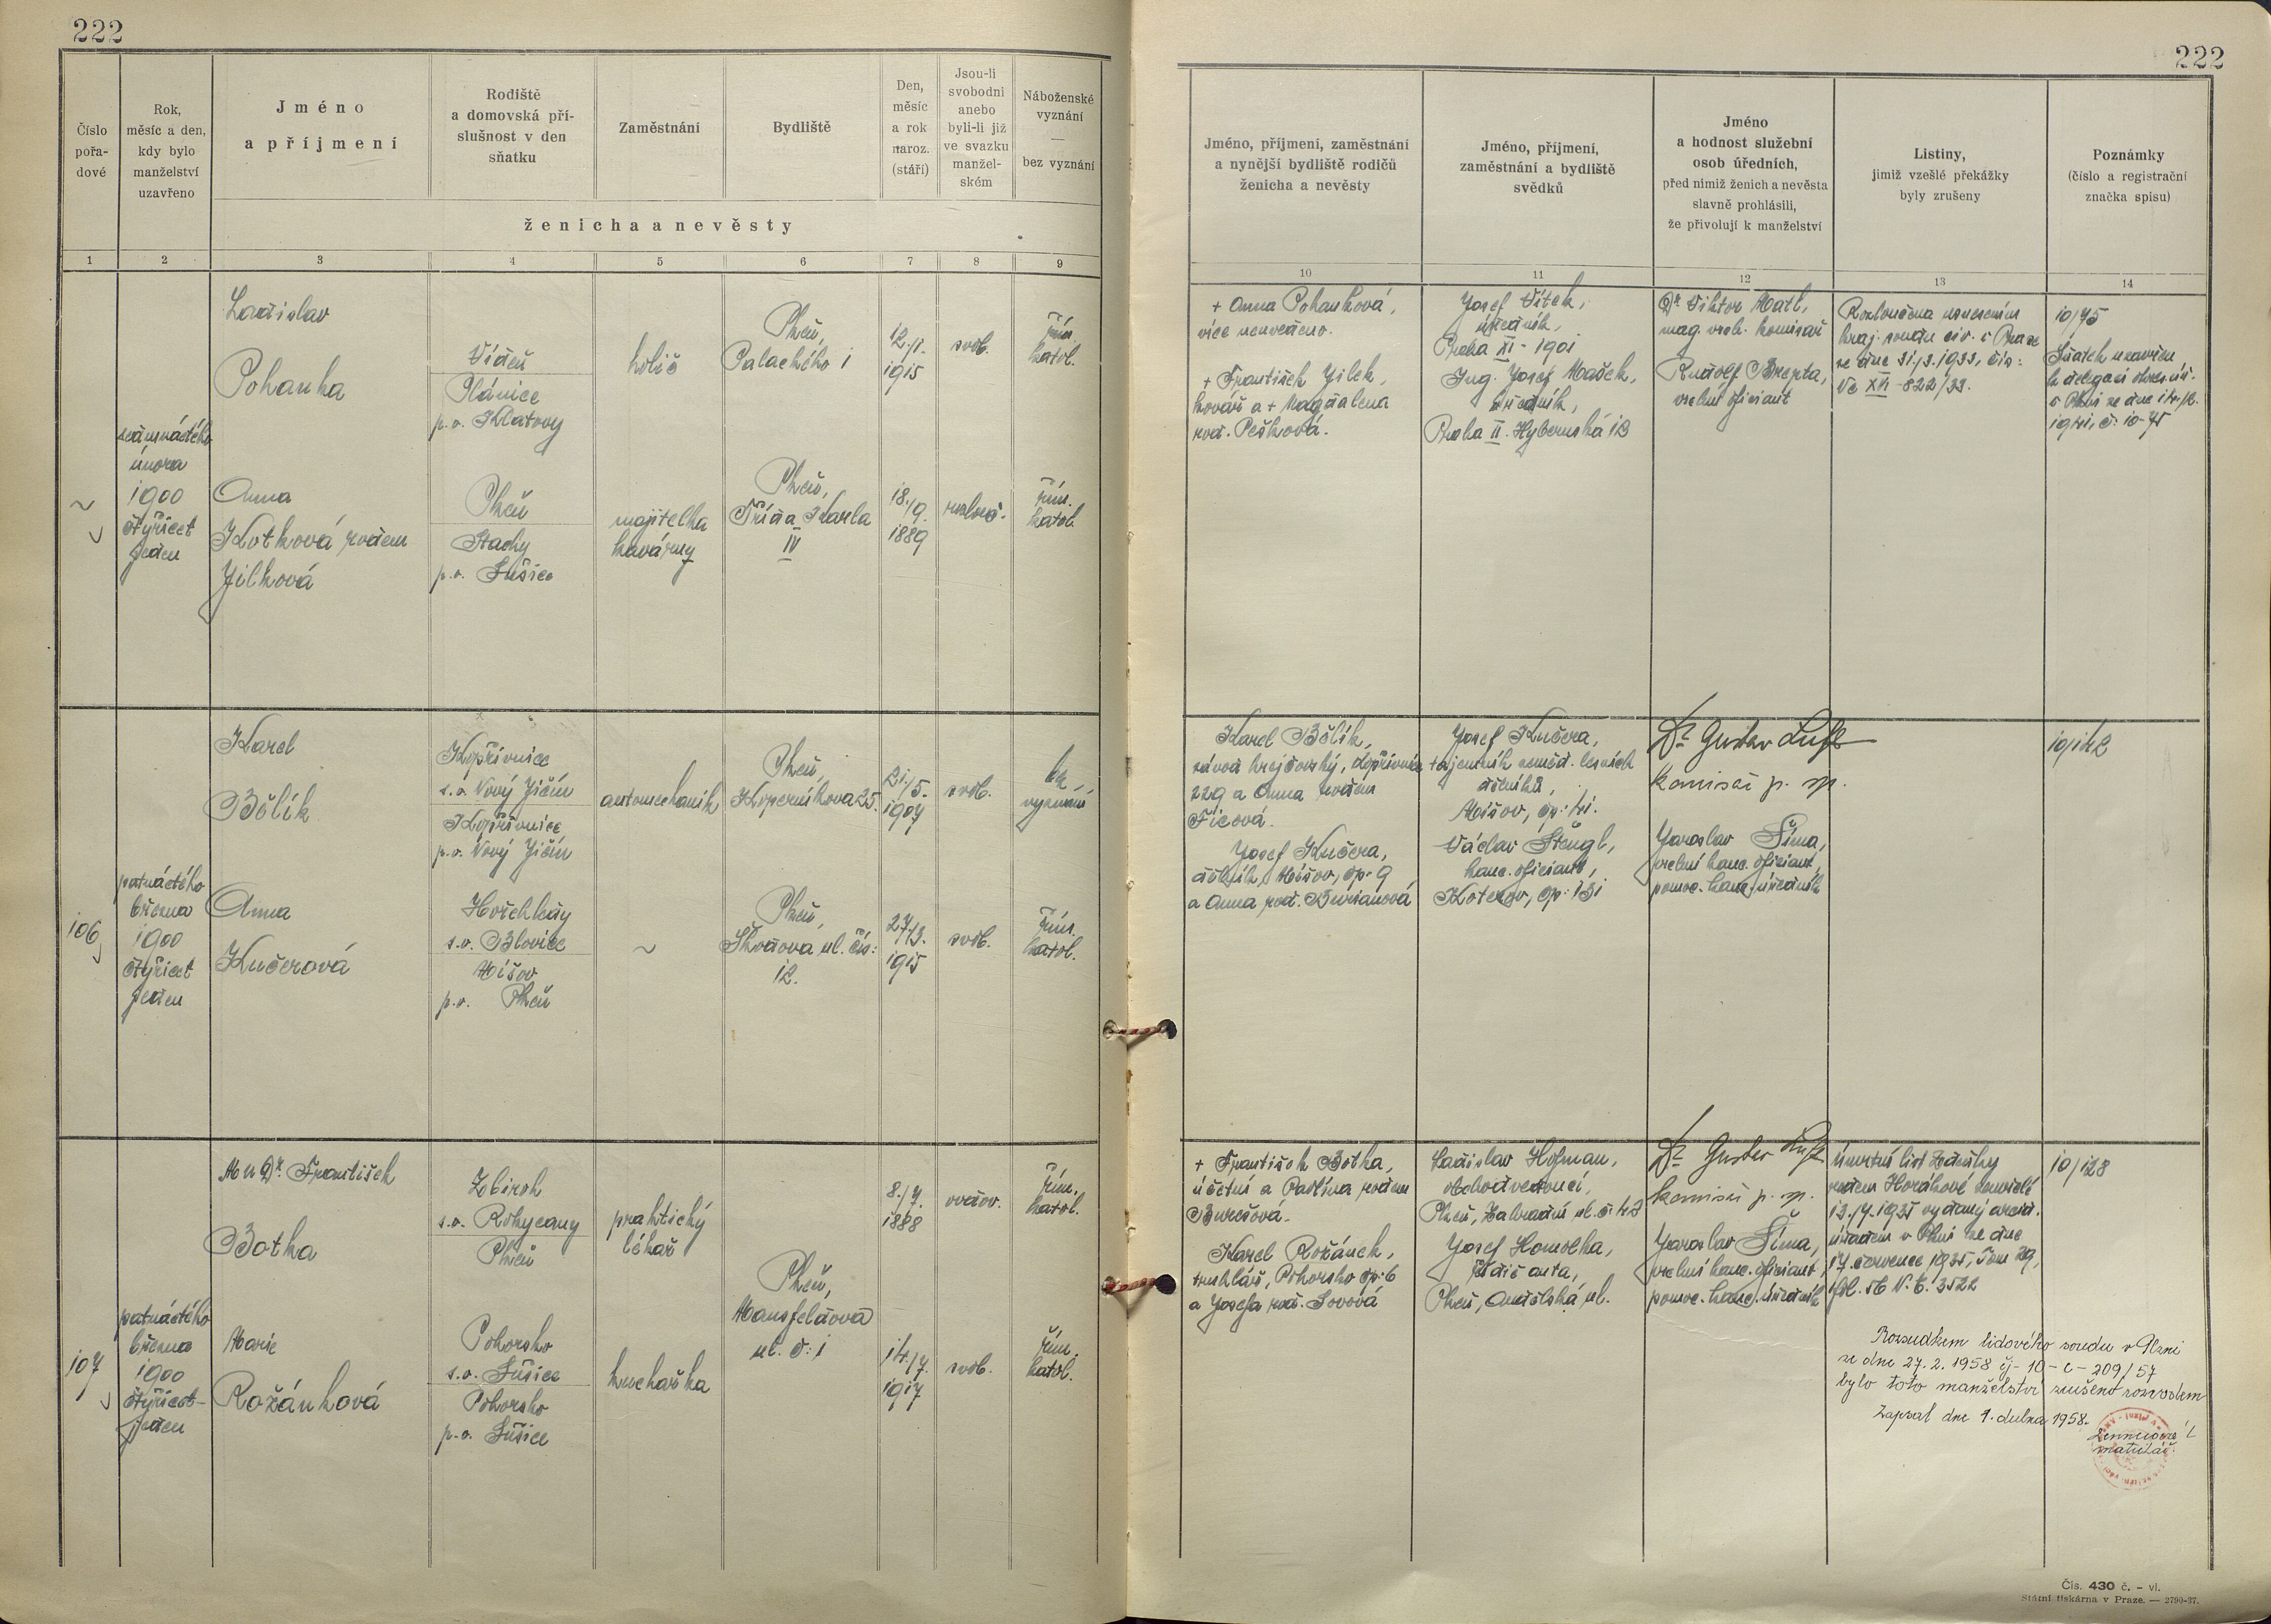 222
222
Číslo
pořa-
dové
Rok,
měsíc a den,
kdy bylo
manželství
uzavřeno
Jméno
a příjmení
Rodiště
a domovská pří-
slušnost v den
sňatku
Zaměstnání
Bydliště
Den,
měsíc
a rok
naroz.
(stáří)
Jsou-li
svobodni
anebo
byli-li již
ve svazku
manžel-
ském
Náboženské
vyznání
—
bez vyznání
ženicha a nevěsty
1 2 3 4 5 6 7 8 9
Jméno, příjmení, zaměstnání
a nynější bydliště rodičů
ženicha a nevěsty
Jméno, příjmení,
zaměstnání a bydliště
svědků
Jméno
a hodnost služební
osob úředních,
před nimiž ženich a nevěsta
slavně prohlásili,
že přivolují k manželství
Listiny,
jimiž vzešlé překážky
byly zrušeny
Poznámky
(číslo a registrační
značka spisu)
10 11 12 13 14
~
sedmnáctého
února
1900
čtyřicet
jeden
Ladislav
Pohanka
Vídeň
Plánice
p.o. Klatovy
holič
Plzeň,
Palackého 1
12./1.
1915
svob.
řím.
katol.
Anna
Kotková rodem
Jílková
Plzeň
Stachy
p.o. Sušice
majitelka
kavárny
Plzeň,
Třída Karla
IV
18./9.
1889
rozlouč.
řím.
katol.
+ Anna Pohanková,
více neuvedeno.
+ František Jílek,
kovář a + Magdalena
rod. Pešková.
Josef Vítek,
úředník,
Praha XI - 1901
Ing. Josef Mašek,
úředník,
Praha II. Hybernská 13
Dr Viktor Matl,
mag. vrch. komisař
Rudolf Brepta,
vrchní oficiant
Rozloučena usnesením
kraj. soudu civ. v Praze
ze dne 31./3. 1933, čís:
Vc XVI-822/33.
10/75
Sňatek uzavřen
k delegaci okres. úř.
v Plzni ze dne 14./2.
1941, č: 10-75
106
patnáctého
března
1900
čtyřicet
jeden
Karel
Bělík
Kopřivnice
s.o. Nový Jičín
Kopřivnice
p.o. Nový Jičín
automechanik
Plzeň,
Koperníkova 25.
21./5.
1907
svob.
bez
vyznání
Anna
Kučerová
Hořehledy
s.o. Blovice
Míšov
p.o. Plzeň
~
Plzeň,
Škodova ul. čís:
12.
27/3.
1915
svob.
řím.
katol.
Karel Bělík,
závod krejčovský, Kopřivnice
229 a Anna rodem
Ficová.
Josef Kučera,
dělník, Míšov, čp: 9
a Anna rod. Burianová
Josef Kučera,
tajemník zeměd. lesních
dělníků,
Míšov, čp: 41.
Václav Štengl,
kanc. oficiant,
Koterov, čp: 131
Dr Gustav Luft
komisař p. sp.
Jaroslav Šíma,
vrchní kanc. oficiant,
pomoc. kanc. úředník
10/142
107
patnáctého
března
1900
čtyřicet-
jeden
MUDr. František
Botka
Zbiroh
s.o. Rokycany
Plzeň
praktický
lékař
8./7.
1888
vdov.
řím.
katol.
Plzeň,
Mansfeldova
ul. č: 1
Marie
Rožánková
Pohorsko
s.o. Sušice
Pohorsko
p.o. Sušice
kuchařka
14./7.
1917
svob.
řím.
katol.
+ František Botka,
účetní a Pavlína rodem
Burešová.
Karel Rožánek,
truhlář, Pohorsko čp: 6
a Josefa rod. Sovová
Ladislav Hofman,
obchodvedoucí,
Plzeň, Zahradní ul. č: 43
Josef Homolka,
řidič auta,
Plzeň, Andělská ul.
Dr Gustav Luft
komisař p. sp.
Jaroslav Šíma,
vrchní kanc. oficiant,
pomoc. kanc. úředník
Úmrtní list Zdeňky
rodem Horákové zemřelé
13./7. 1935 vydaný arcid.
úřadem v Plzni ze dne
17. července 1935, Tom 29,
fol. 56 N. E. 3522
10/128
Rozsudkem lidového soudu v Plzni
ze dne 27. 2. 1958 čj- 10 - c - 209/57
bylo toto manželství zrušeno rozvodem
Zapsal dne 1. dubna 1958.
matrikář.
Čís. 430 č. - vl.
Státní tiskárna v Praze. — 2790-37.